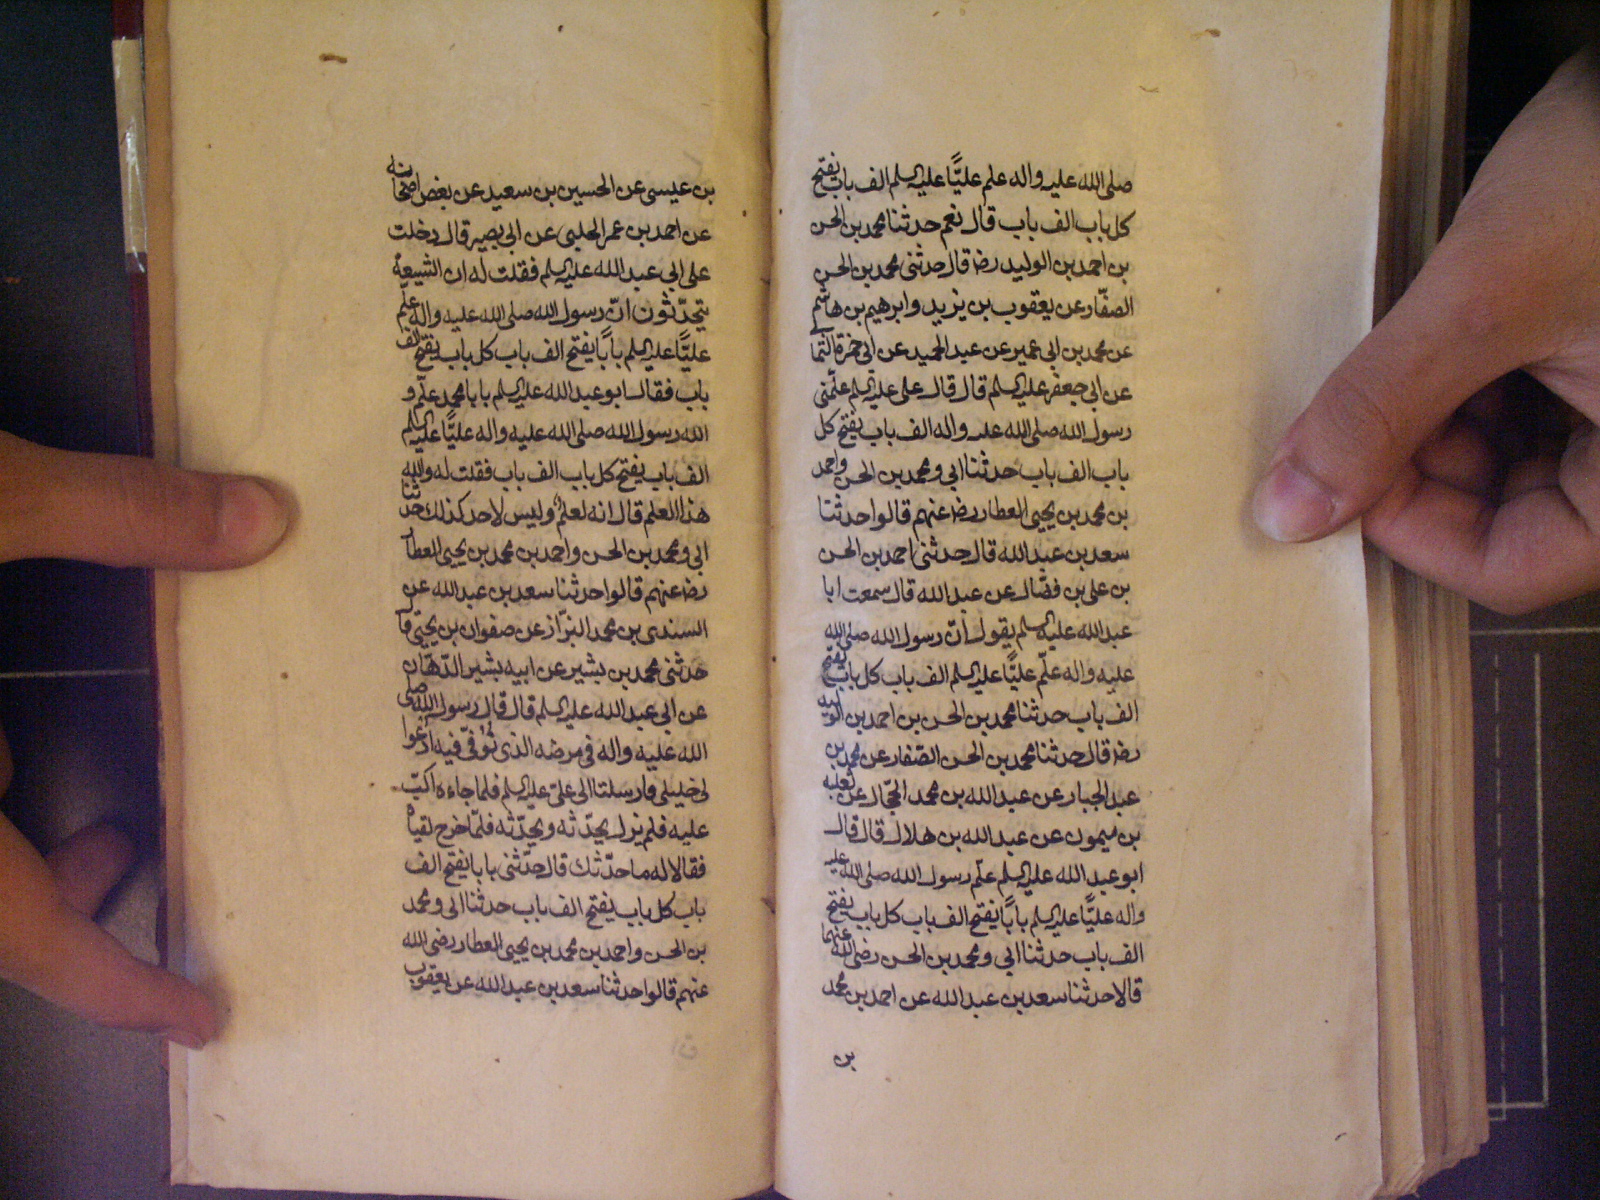 صلى الله عليه واله علم عليًّا عليه السلم الف باب يفتح
كل باب الف باب قال نعم حدثنا محمد بن الحسن
بن احمد بن الوليد رضه قال حدثنى محمد بن الحسن
الصفّار عن يعقوب بن يزيد وابرهيم بن هاشم
عن محمد بن ابى عمير عن عبد الحميد عن ابى حمزة الثمالى
عن ابى جعفر عليه السلم قال قال على عليه السلم علّمنى
رسول الله صلى الله عليه واله الف باب يفتح كل
باب الف باب حدثنا ابى ومحمد بن الحسن واحمد
بن محمد بن يحيى العطار رضه عنهم قالوا حدثنا
سعد بن عبد الله قال حدثنى احمد بن الحسن
بن على بن فضّال عن عبد الله قال سمعت ابا
عبد الله عليه السلم يقول انّ رسول الله صلى الله
عليه واله علّم عليًّا عليه السلم الف باب كل باب يفتح
الف باب حدثنا محمد بن الحسن بن احمد بن الوليد
رضه قال حدثنا محمد بن الحسن الصّفار عن محمد بن
عبد الجبار عن عبد الله بن محمد الحجّال عن ثعلبه
بن ميمون عن عبد الله بن هلال قال قال
ابو عبد الله عليه السلم علّم رسول الله صلى الله عليه
واله عليًّا عليه السلم بابًا يفتح الف باب كل باب يفتح
الف باب حدثنا ابى ومحمد بن الحسن رضى الله عنهما
قالا حدثنا سعد بن عبد الله عن احمد بن محمد
بن
بن عيسى عن الحسين بن سعيد عن بعض اصحابه
عن احمد بن عمر الحلبى عن ابى بصير قال دخلت
على ابى عبد الله عليه السلم فقلت له ان الشيعة
يتحدّثون انّ رسول الله صلى الله عليه واله علّم
عليًّا عليه السلم بابًا يفتح الف باب كل باب يفتح الف
باب فقال ابو عبد الله عليه السلم يا با محمد علّم و
الله رسول الله صلى الله عليه واله عليًّا عليه السلم
الف باب يفتح كل باب الف باب فقلت له والله
هذا العلم قال انه لعلم وليس لاحد كذلك حدثنا
ابى ومحمد بن الحسن واحمد بن محمد بن يحيى العطار
رضه عنهم قالوا حدثنا سعد بن عبد الله عن
السندى بن محمد البزّاز عن صفوان بن يحيى قال
حدثنى محمد بن بشير عن ابيه بشير الدّهان
عن ابى عبد الله عليه السلم قال قال رسول الله صلى
الله عليه واله فى مرضه الذى تُوُفّى فيه ادعوا
لى خليلى فارسلتا الى علىّ عليه السلم فلما جاءه اكبّ
عليه فلم يزل يحدّثه ويحدّثه فلمّا خرج لقياه
فقالا له ما حدّثك قال حدّثنى بابا يفتح الف
باب كل باب يفتح الف باب حدثنا ابى ومحمد
بن الحسن واحمد بن محمد بن يحيى العطار رضى الله
عنهم قالوا حدثنا سعد بن عبد الله عن يعقوب